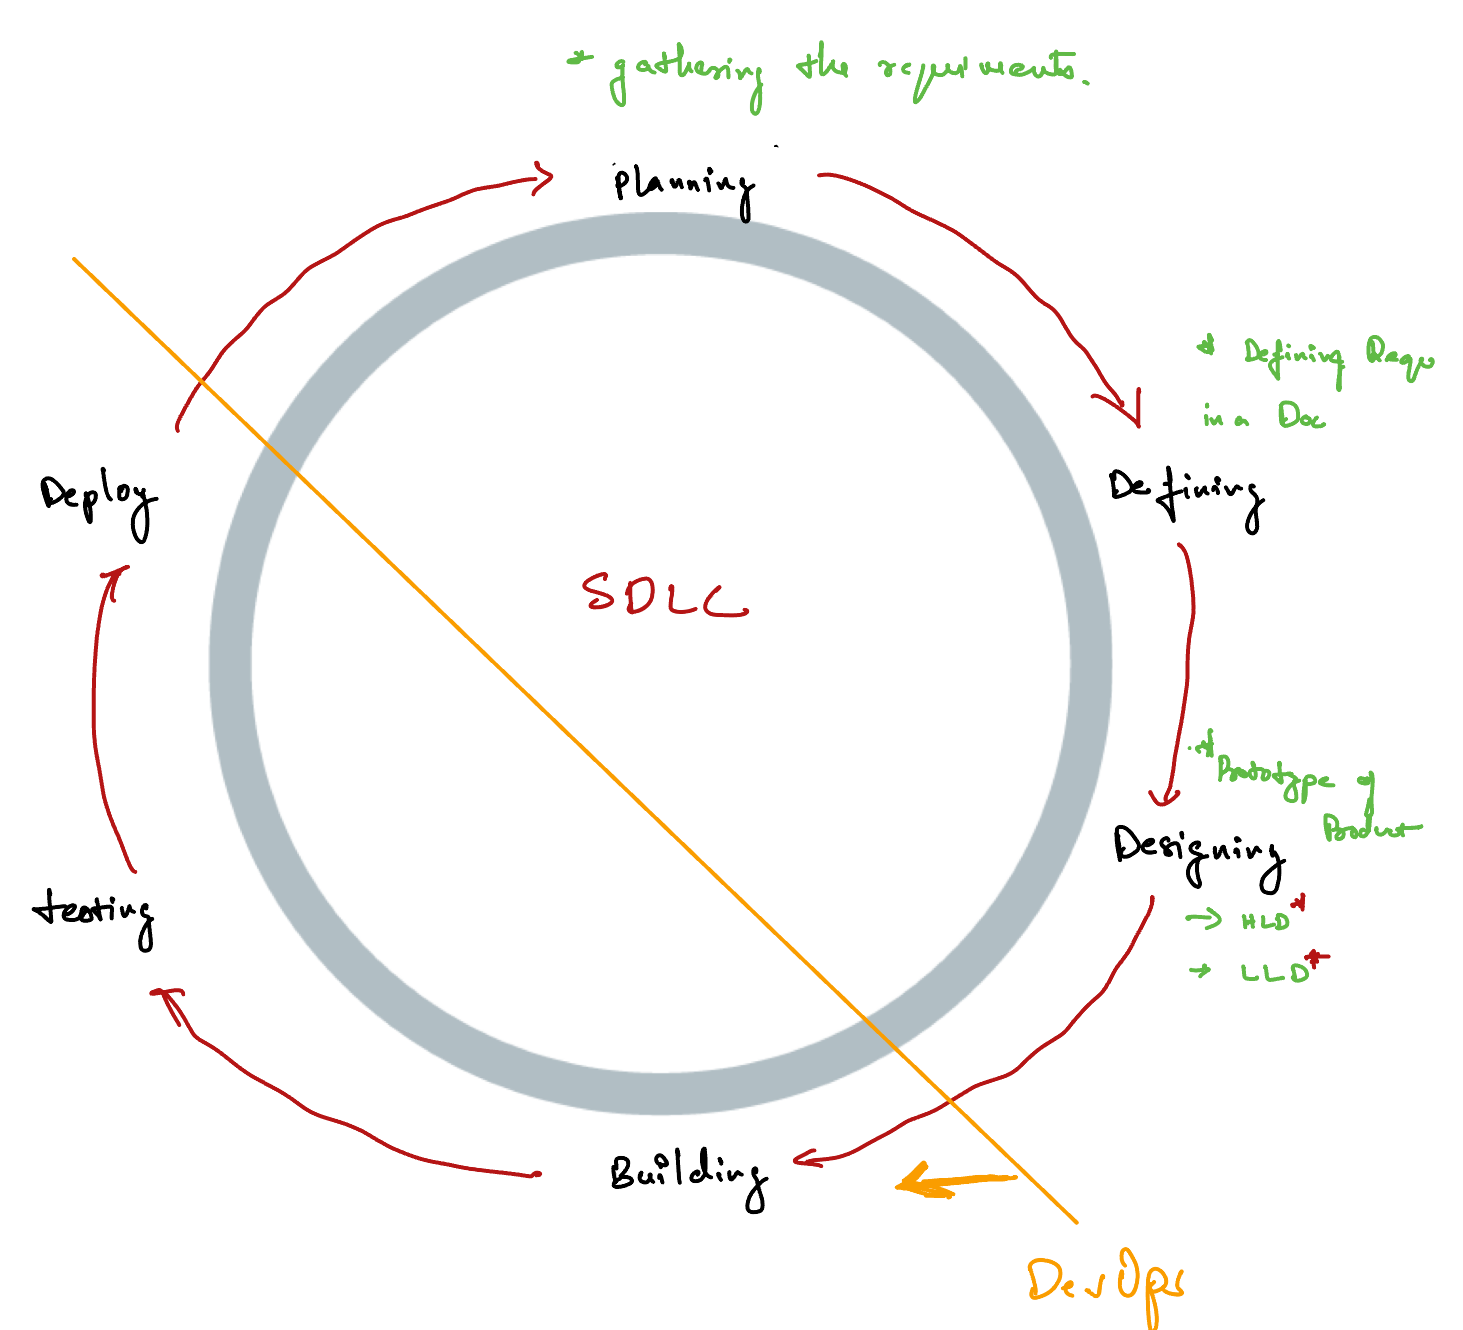 * gathering the requirements.
Planning
* Defining Requ
in a Doc
Deploy
Defining
SDLC
* Prototype of
Product
Designing
→ HLD*
→ LLD*
testing
Building
DevOps